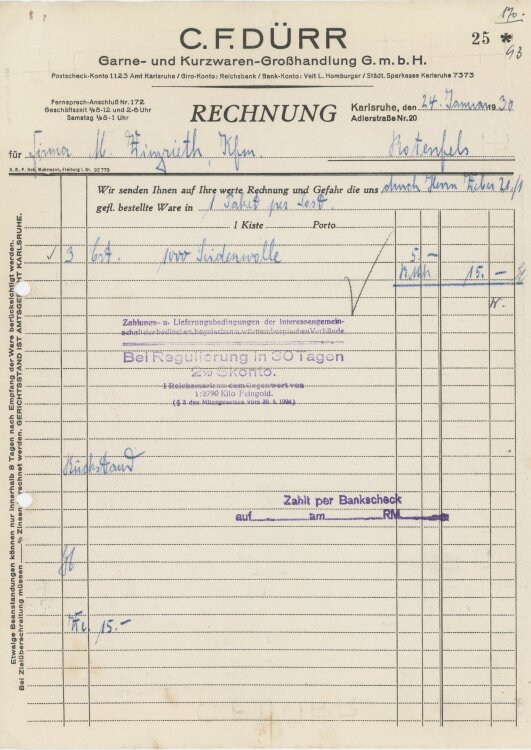 170.
C. F. DÜRR
25 *
93
Garne- und Kurzwaren-Großhandlung G. m. b. H.
Postscheck-Konto 1123 Amt Karlsruhe / Giro-Konto: Reichsbank / Bank-Konto: Veit L. Homburger / Städt. Sparkasse Karlsruhe 7373
Fernsprech-Anschluß Nr. 172
Geschäftszeit ½8-12 und 2-6 Uhr
Samstag ½8-1 Uhr
RECHNUNG
Karlsruhe, den 24. Januar 1930
Adlerstraße Nr. 20
für Firma M. Kfm. Rotenfels
Wir senden Ihnen auf Ihre werte Rechnung und Gefahr die uns durch Herrn 21/1
gefl. bestellte Ware in 1 Paket per Post.
1 Kiste Porto
3 Crt. 1000 Seidenwolle 5.-
15.-
Zahlungs- u. Lieferungsbedingungen der Interessengemein-
schaft der badischen, bayrischen u. württembergischen Verbände
Bei Regulierung in 30 Tagen
2% Skonto.
1 Reichsmark aus dem Gegenwert von
1:2790 Kilo Feingold.
(§ 3 des Münzgesetzes vom 30. 8. 1924)
Rückstand
Zahlt per Bankscheck
auf am RM.
15.-
Etwaige Beanstandungen können nur innerhalb 8 Tagen nach Empfang der Ware berücksichtigt werden.
Bei Zielüberschreitung müssen % Zinsen berechnet werden. GERICHTSSTAND IST AMTSGERICHT KARLSRUHE.